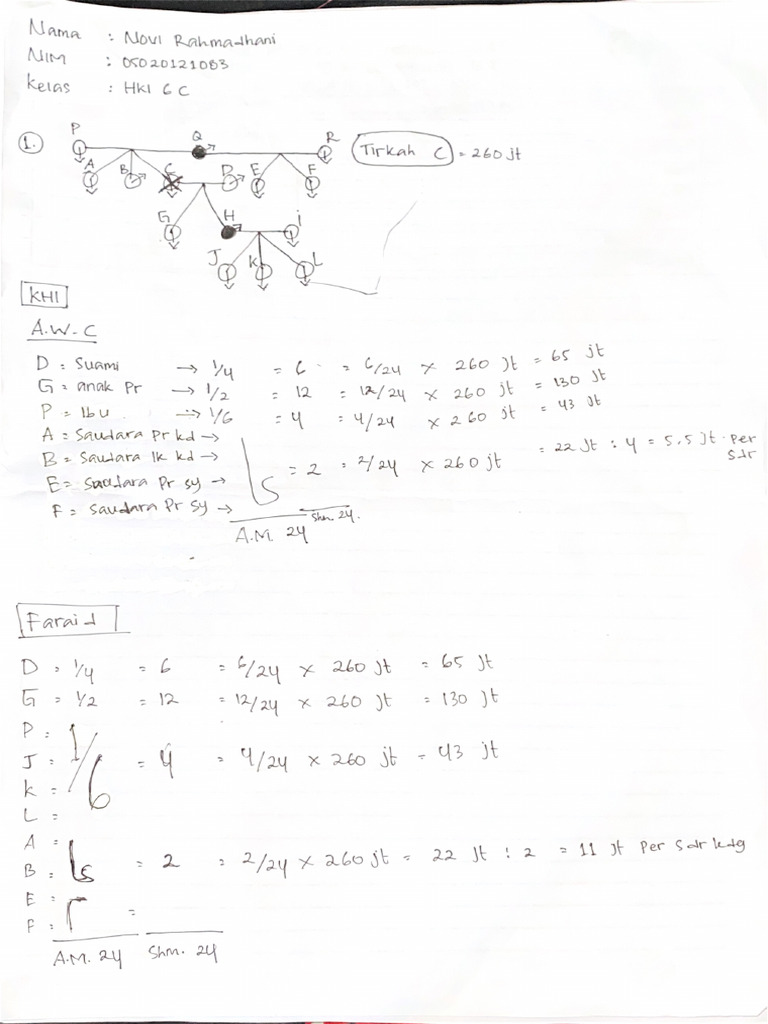 Nama : Novi Rahmadhani
NIM : 05020121083
Kelas : HKI 6 C
1. P Q R Tirkah C = 260 jt
A B C D E F
G H i
J K L
KHI
A.W.C
D = Suami → 1/4 = 6 = 6/24 × 260 jt = 65 jt
G = anak Pr → 1/2 = 12 = 12/24 × 260 jt = 130 jt
P = Ibu → 1/6 = 4 = 4/24 × 260 jt = 43 jt
A = Saudara Pr kd →
B = Saudara lk kd → = 2 = 2/24 × 260 jt = 22 Jt : 4 = 5.5 Jt per sdr
E = Saudara Pr sy →
F = Saudara Pr Sy →
A.M. 24 Shm. 24.
Faraid
D = 1/4 = 6 = 6/24 × 260 jt = 65 jt
G = 1/2 = 12 = 12/24 × 260 jt = 130 jt
P =
J = 1/6 = 4 = 4/24 × 260 jt = 43 jt
K =
L =
A =
B = = 2 = 2/24 × 260 jt = 22 Jt : 2 = 11 Jt Per Sdr kdg
E =
F = =
A.M. 24 Shm. 24